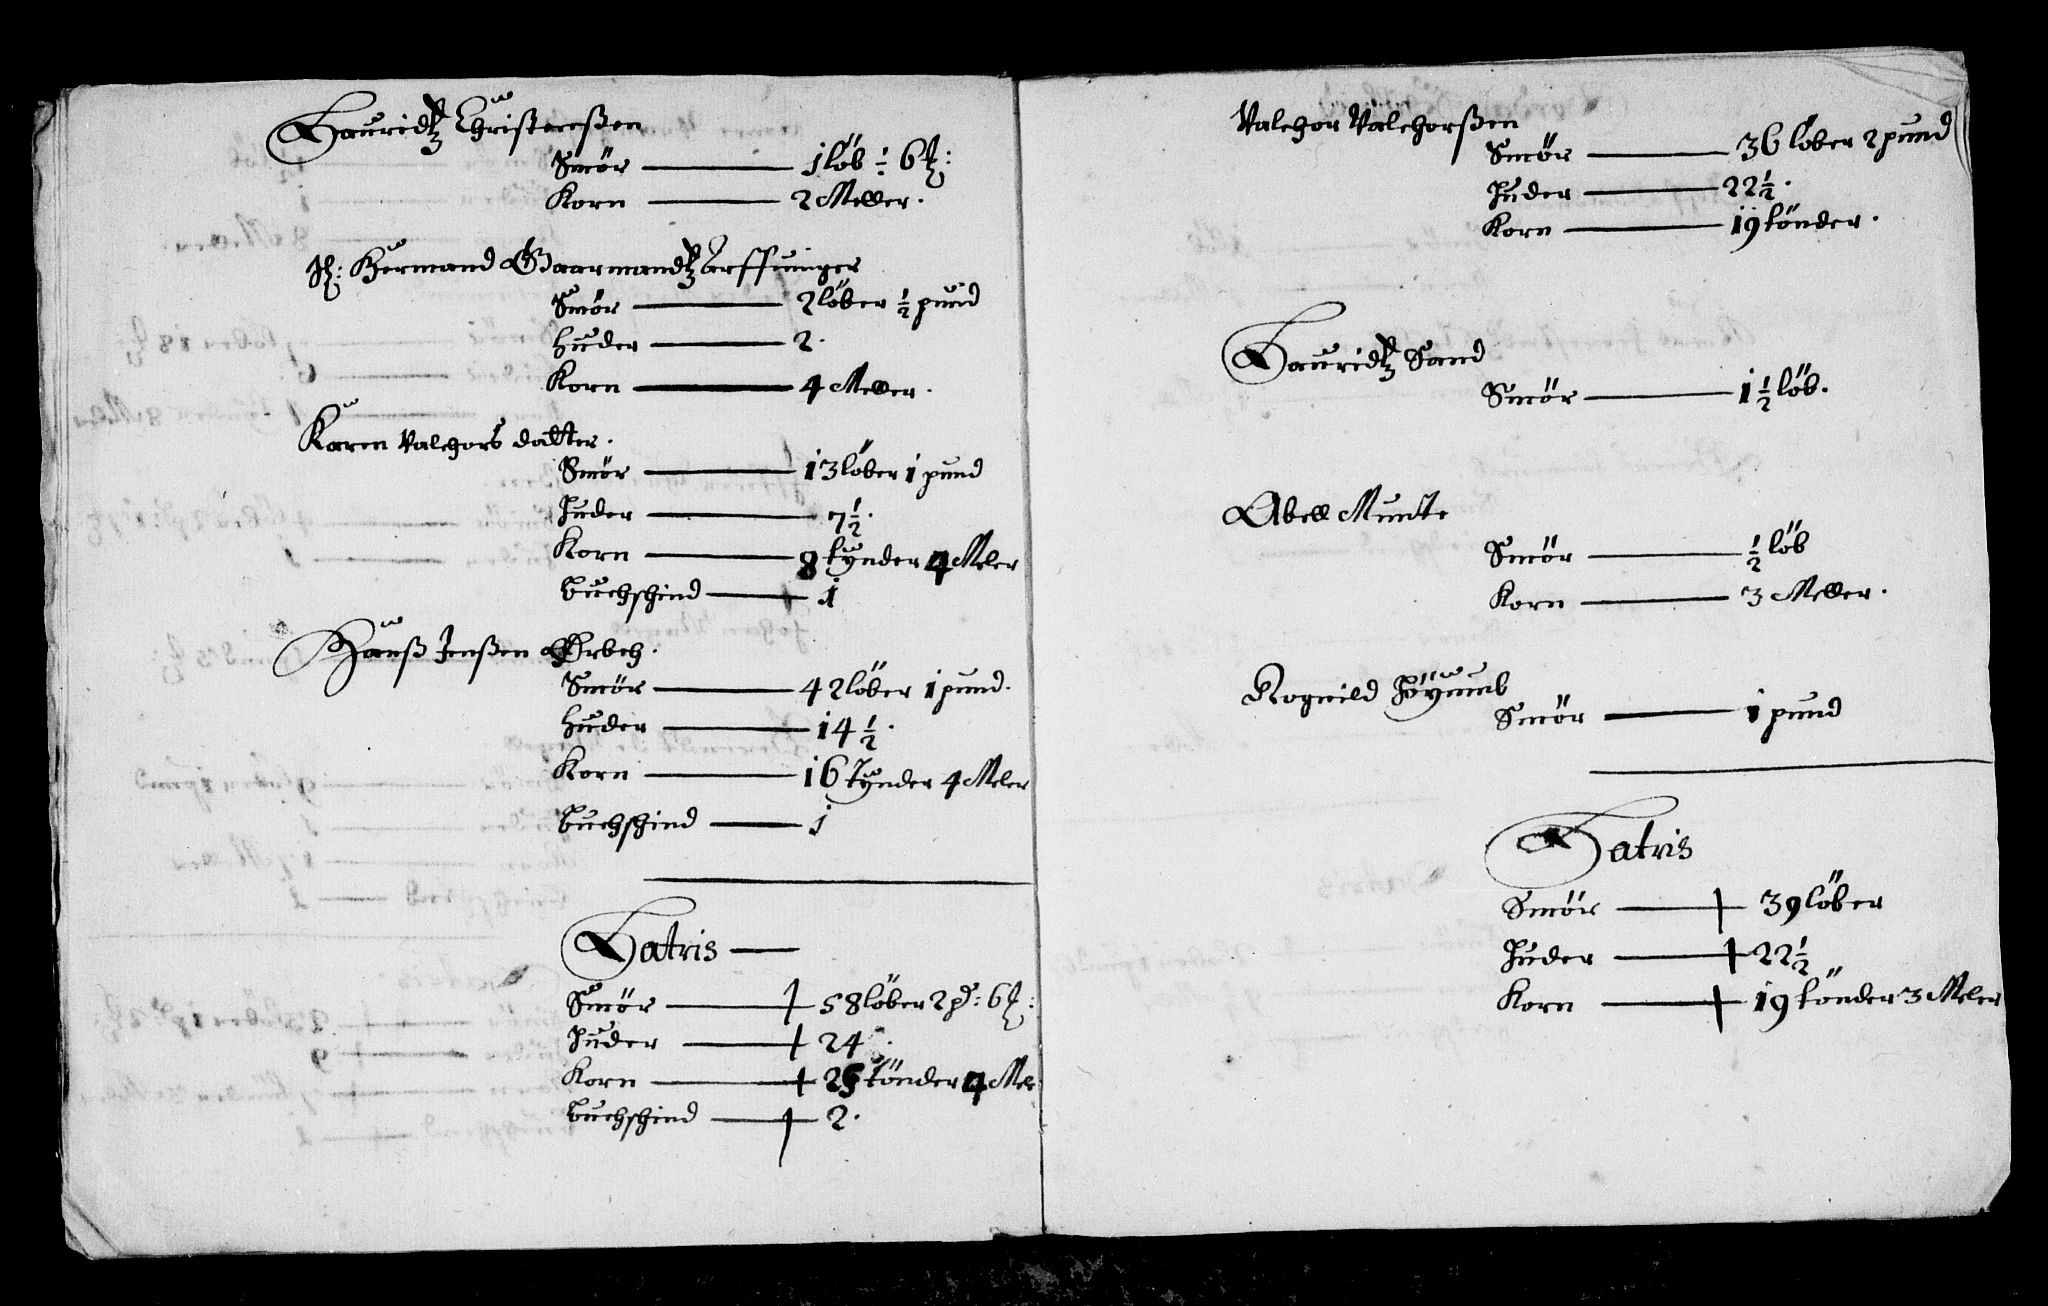 Lauridtz Christensen
Smør — 1 løb ÷ 6 ℔:
Korn — 2 Meller.
Sl: Hermand Gaarmandtz Arffuinger
Smør — 2 løber ½ pund
Huder — 2.
Korn — 4 Meller.
Karen Valchors datter.
Smør — 13 løber 1 pund
Huder — 7½.
Korn — 8 tynder 4 Meler
Buchschind — 1
Hanß Jenßen Orbech.
Smør — 42 løber 1 pund.
Huder — 14½.
Korn — 16 Tynder 4 Meler
Buchschind — 1
Latris —
Smør — 58 løber 2 pd: 6 ℔:
Huder — 24.
Korn — 25 tønder 4 Mele
Buchschind — 2.
Valchor Valchorßen
Smør — 36 løber 2 pund
Huder — 22½.
Korn — 19 tønder.
Lauridtz Sand
Smør — 1½ løb.
Abell Munte
Smør — ½ løb
Korn — 3 Meller.
Rognild
Smør — 1 pund
Latris
Smør — 39 løber
Huder — 22½
Korn — 19 tønder 3 Meler